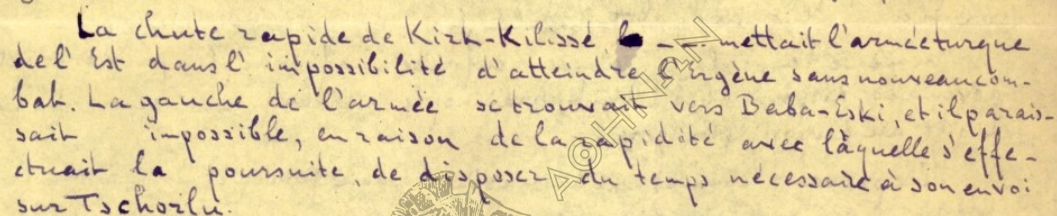 La chute rapide de Kirk-Kilisse - - mettait l'armée turque
de l'Est dans l'impossibilité d'atteindre l'Ergène sans nouveau com-
bat. La gauche de l'armée se trouvait vers Baba-Eski, et il parais-
sait impossible, en raison de la rapidité avec laquelle s'effe-
ctuait la poursuite, de disposer du temps nécessaire à son envoi
sur Tschorlu.
ΑΘΗΝΩΝ